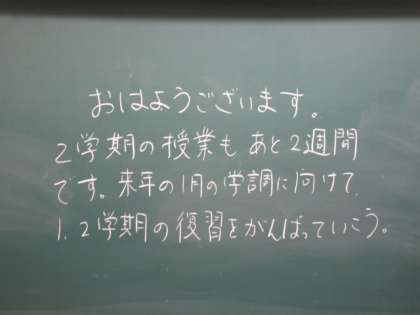 おはようございます。
2学期の授業も あと2週間
です。来年の1月の学調に向けて
1.2学期の復習をがんばっていこう。